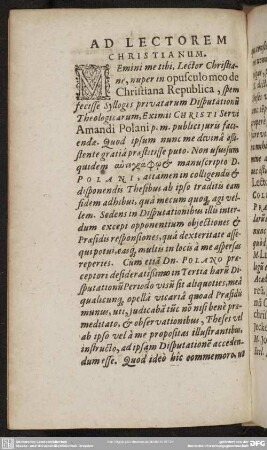 AD LECTOREM
CHRISTIANUM.
MEmini me tibi, Lector Christia-
ne, nuper in opusculo meo de
Christiana Republica, spem
fecisse Sylloges privatarum Disputationũ
Theologicarum, Eximii CHRISTI Servi
Amandi Polani p. m. publici juris faci-
endæ. Quod ipsum nunc me divinâ as-
sistente gratiâ præstitisse puto. Non usus sum
quidem αὐτογράφῳ & manuscripto D.
POLANI, attamen in colligendis &
disponendis Thesibus ab ipso traditis eam
fidem adhibui, quâ mecum quoq, agi vel-
lem. Sedens in Disputationibus illis inter-
dum except opponentium objectiones &
Præsidis responsiones, quâ dexteritate asse-
qui potui, easq, multis in locis à me aspersas
reperies. Cum etiã Dn. POLANO præ-
ceptori desideratissimo in Tertia harũ Di-
sputationũ Periodo visũ sit aliquoties, meâ
qualicunq, opellâ vicariâ quoad Præsidii
munus, uti, judicabã tũc nõ nisi benè præ-
meditato, & observationibus, Theses vel
ab ipso vel à me propositas illustrantibus,
instructo, ad ipsam Disputationē acceden-
dum esse. Quod ideò hic commemoro, ut